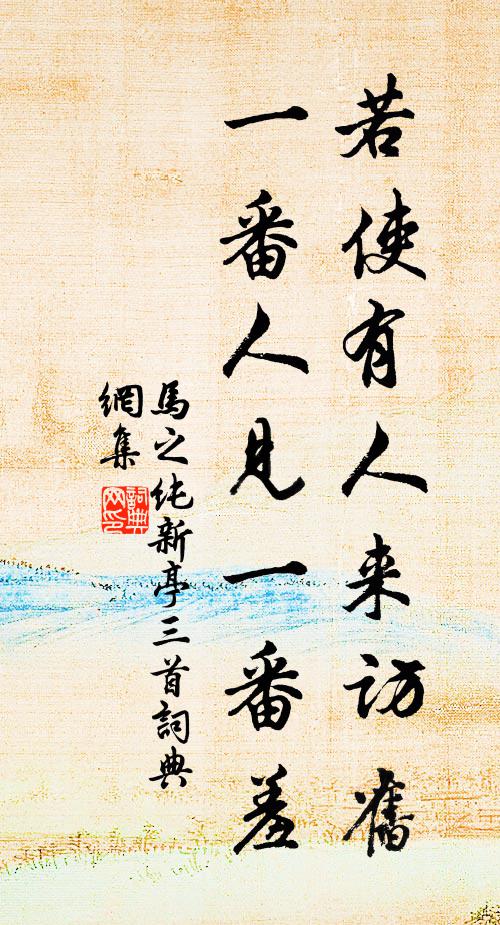 若使有人来访舊
一番人見一番羞
馬之纯新亭三首詞典
網集
詞典
网印